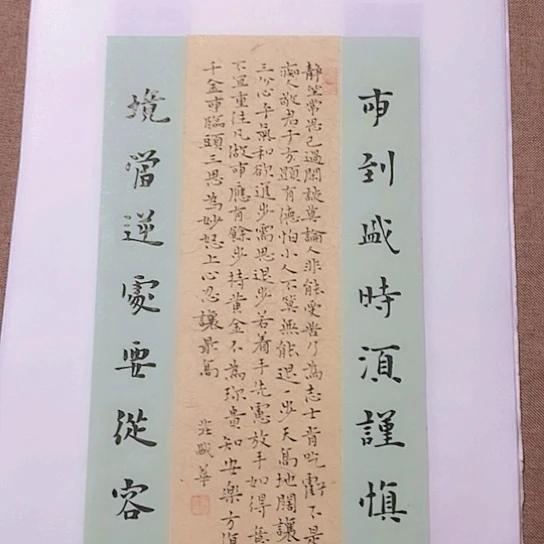 事到盛時須謹慎
靜坐常思己過閑談莫論人非能受苦乃為志士肯吃虧不是
痴人敬君子方顯有德怕小人不算無能退一步天高地闊讓
三分心平氣和欲進步需思退步若着手先慮放手如得意
不宜重往凡做事應有餘步持黃金不為珍貴知安樂方值
千金事臨頭三思為妙怒上心忍讓最高
華
境當逆處要從容